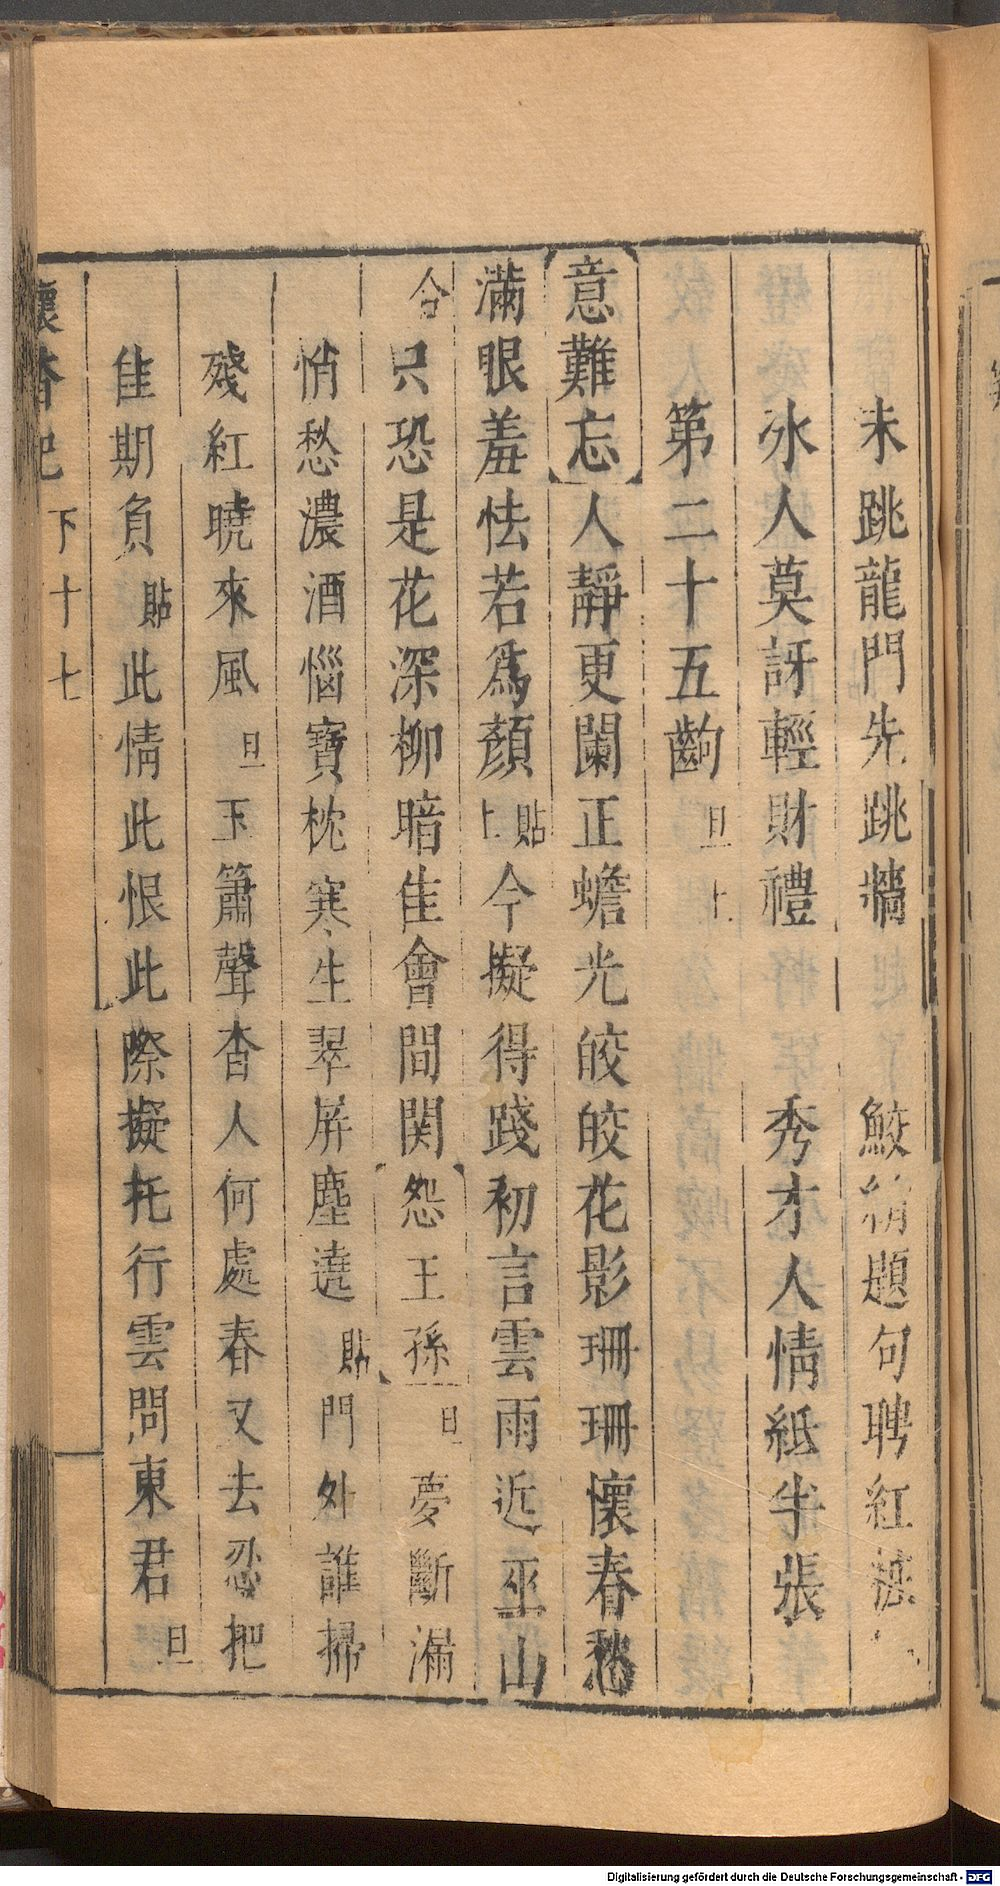 未跳龍門先跳牆　鮫綃題句聘紅
氷人莫訝輕財禮　秀才人情紙半張
第二十五齣　旦上
意難忘　人靜更闌正蟾光皎皎花影珊珊懷春愁
滿眼羞怯若爲顏　貼上　今擬得踐初言雲雨近巫山
合　只恐是花深柳暗佳會間関　怨王孫　旦　夢斷漏
悄愁濃酒惱寶枕寒生翠屏塵遶　貼　門外誰掃
殘紅曉來風　旦　玉簫聲杳人何處春又去忍把
佳期負　貼　此情此恨此際擬托行雲問東君　旦
懷香記　下　十七
Digitalisierung gefördert durch die Deutsche Forschungsgemeinschaft - DFG